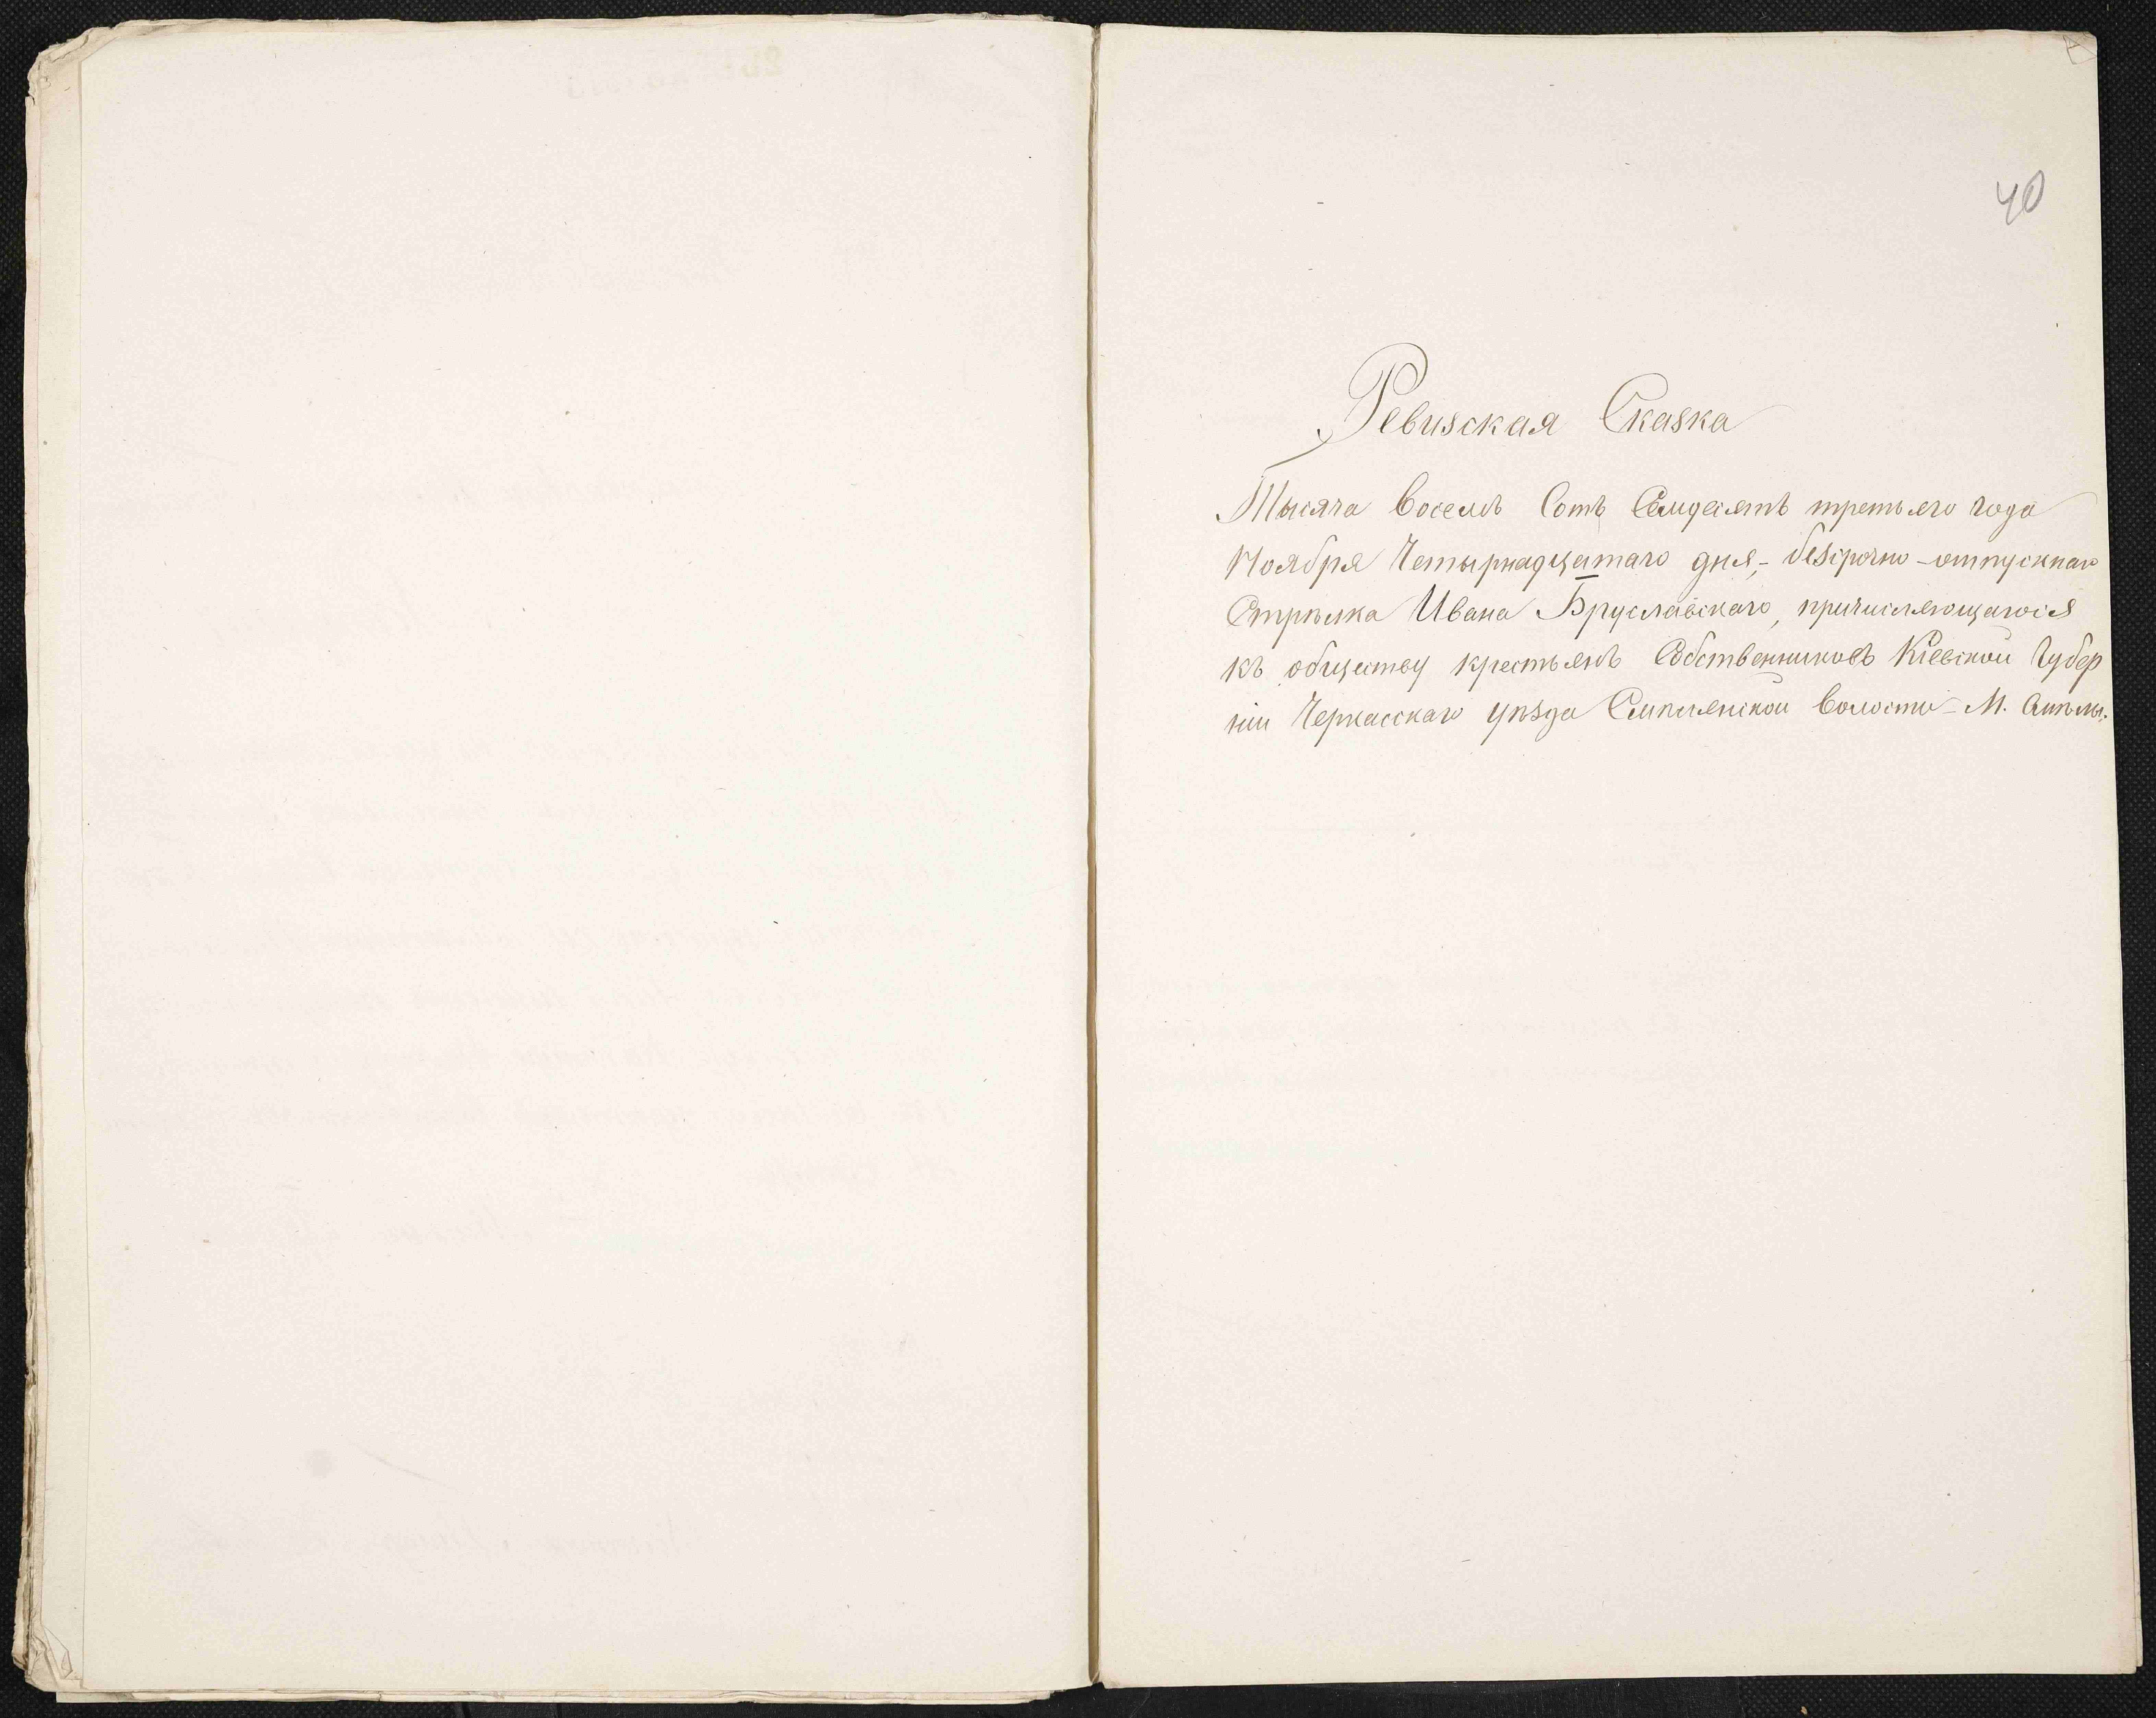 40
Ревизская Сказка
Тысяча Восемь Сотъ Семдесятъ третьяго года
Ноября Четырнадцатаго дня,- безсрочно-отпускнаго
Стрѣлка Ивана Бруславскаго, причисляющагося
къ обществу крестьянъ Собственниковъ Кіевской Губер
ніи Черкасскаго уѣзда Смѣлянской Волости - М. Смѣлы.